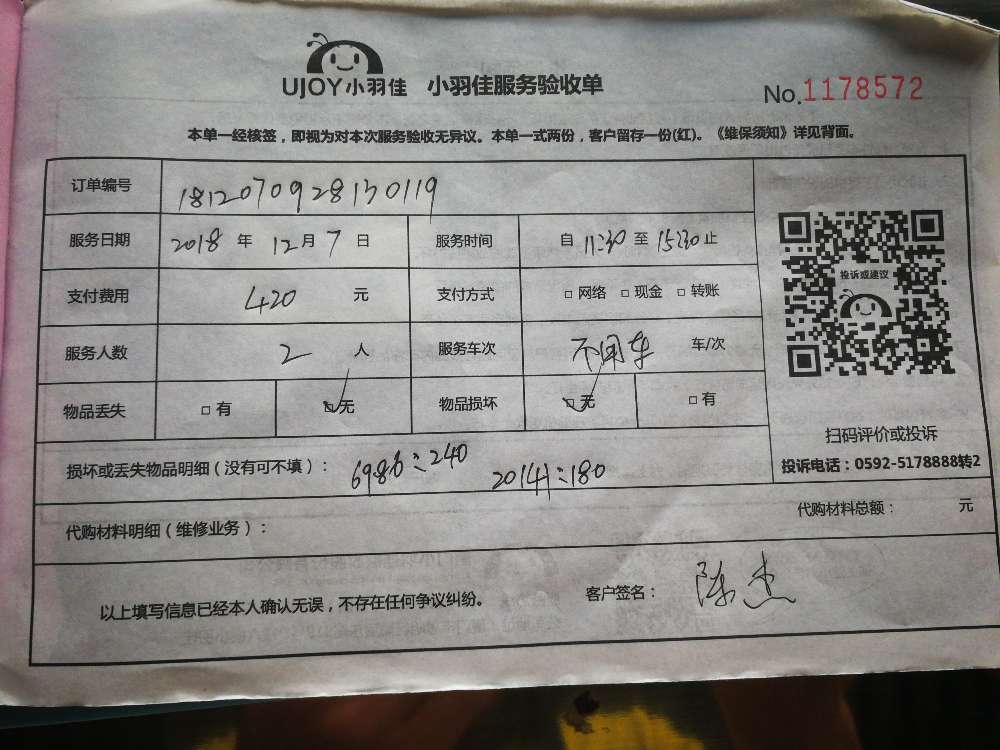 UJOY小羽佳 小羽佳服务验收单 No.1178572
本单一经核签，即视为对本次服务验收无异议。本单一式两份，客户留存一份(红)。《维保须知》详见背面。
订单编号 1812070928130119
服务日期 2018 年 12 月 7 日 服务时间 自 11:30 至 15:30 止
支付费用 420 元 支付方式 □ 网络 □ 现金 □ 转账
投诉或建议
服务人数 2 人 服务车次 不用车 车/次
物品丢失 □ 有 ☑ 无 物品损坏 ☑ 无 □ 有
扫码评价或投诉
投诉电话：0592-5178888转2
损坏或丢失物品明细（没有可不填）： 6986：240 20141：180
代购材料明细（维修业务）： 代购材料总额： 元
以上填写信息已经本人确认无误，不存在任何争议纠纷。 客户签名： 陈杰